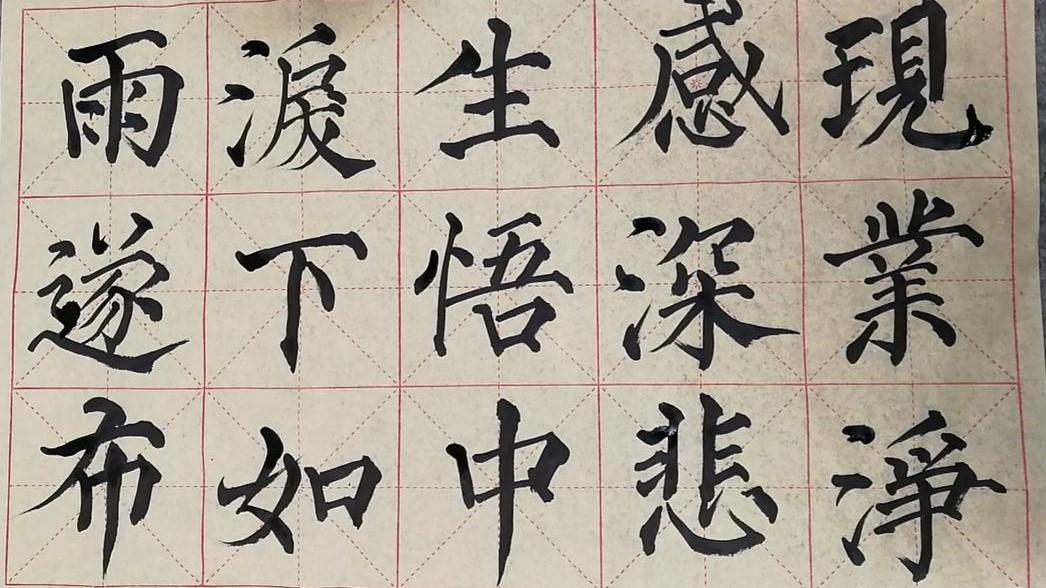 現業淨
感深悲
生悟中
淚下如
雨遂布